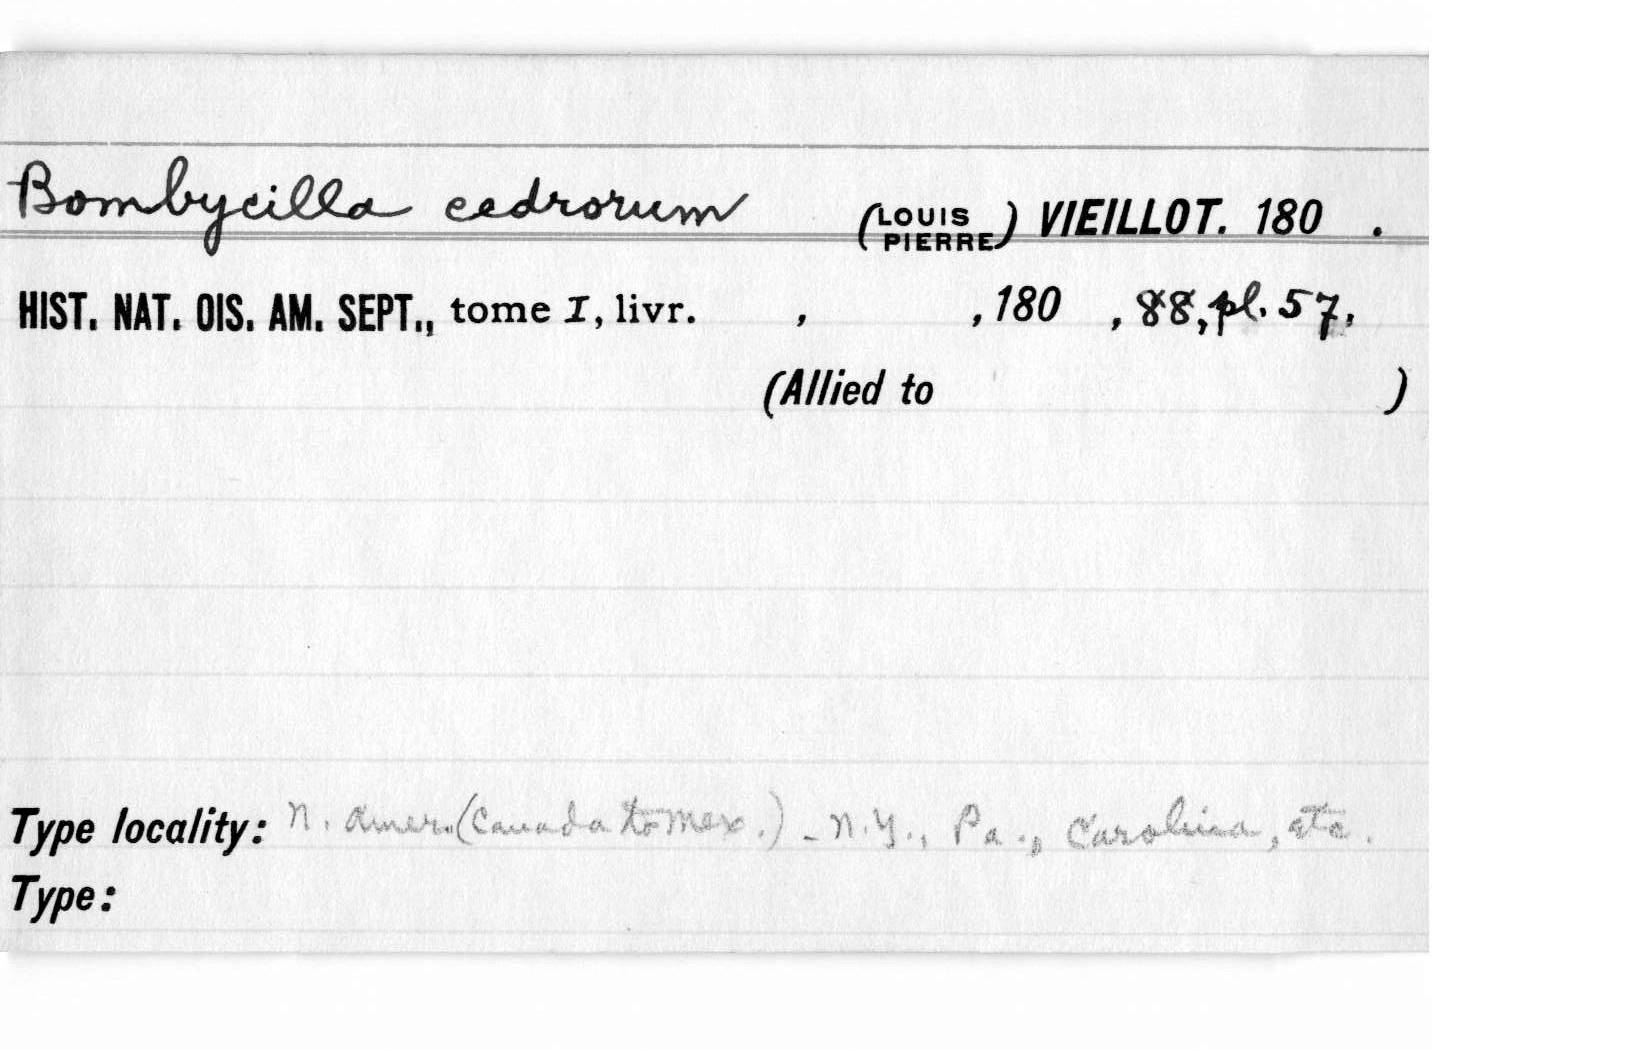 Bombycilla cedrorum (LOUIS PIERRE) VIEILLOT. 180 .
HIST. NAT. OIS. AM. SEPT., tome I, livr. , , 180 , 88, pl. 57.
(Allied to )
Type locality: N. Amer. (Canada to Mex.) - N.Y., Pa., Carolina, etc.
Type: